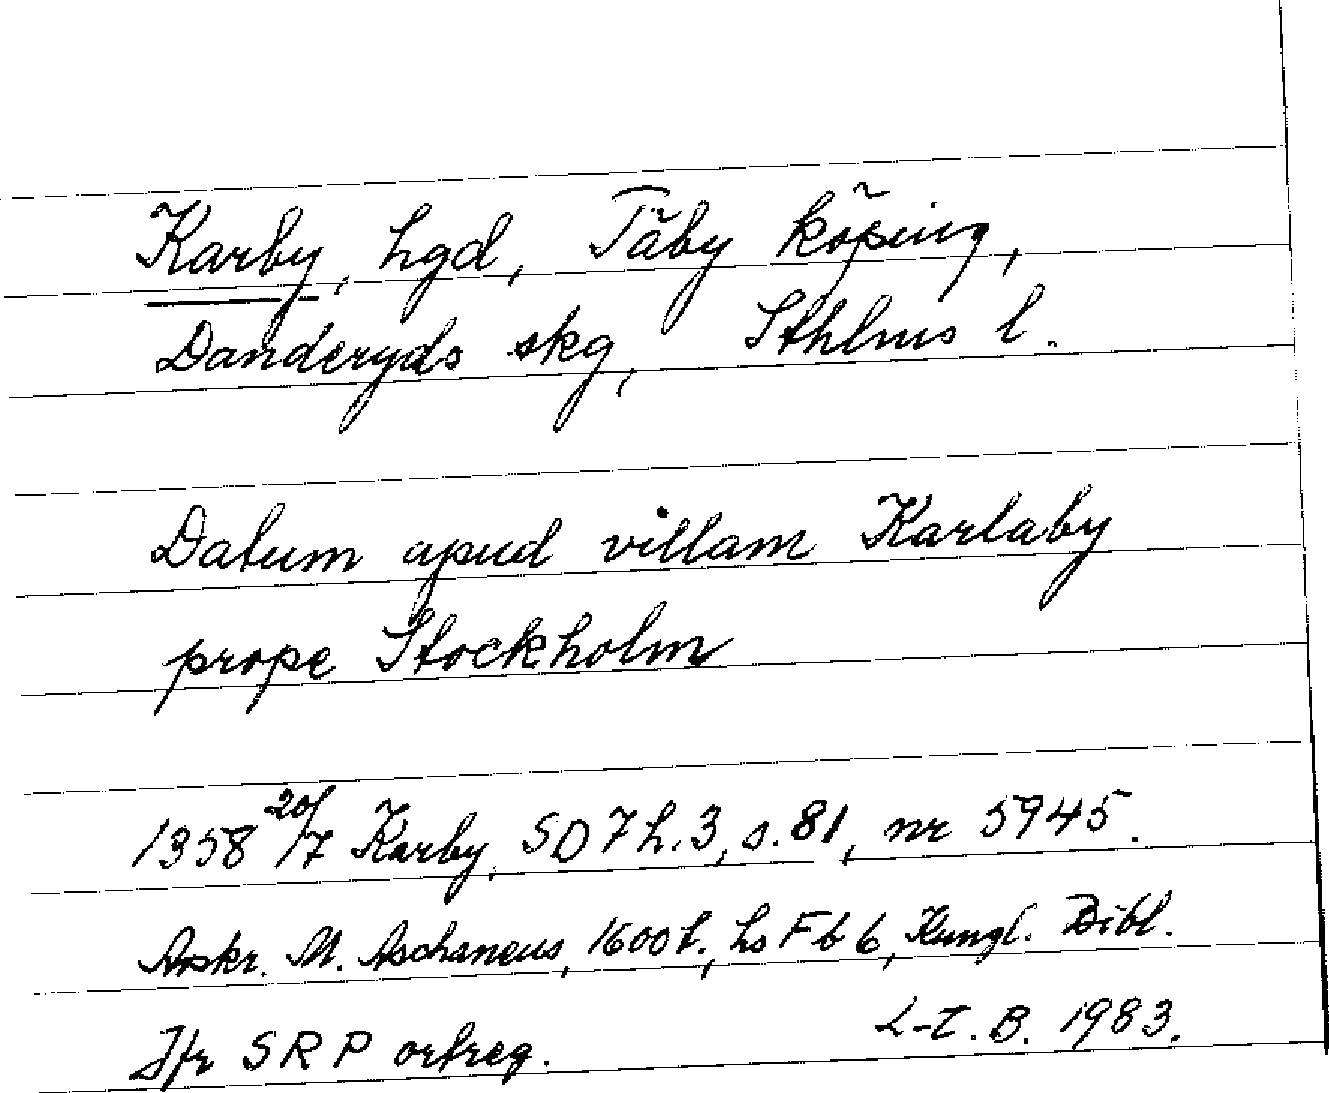 Karby, hgd, Täby köping,
Danderyds skg, Sthlms l.
Datum apud villam Karlaby
prope Stockholm
1358 20/7 Karby, SD 7 h. 3, s. 81, nr 5945.
Avskr. M. Aschaneus, 1600 t., hs F b 6, Kungl. Bibl.
Jfr SRP ortreg. L-T. B. 1983.